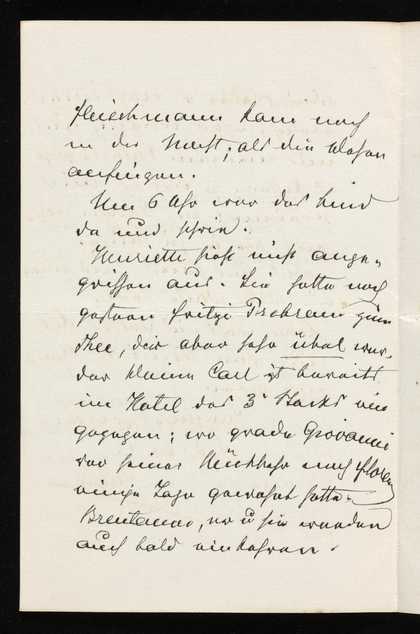 Fleischmann kam noch
in der Nacht, als die Wehen
anfingen.
Um 6 Uhr war das Kind
da und schrie.
Henriette sieht nicht ange„
griffen aus. Sie hatte noch
gestern Fritzi zum
Thee, der aber sehr übel war.
der kleine Carl ist bereits
im Hotel des 3 ein
gezogen; wo grade Giovanni
vor seiner Rückkehr nach Florenz
einige Tage gewohnt hatte.
Brentanos, no u sie werden
auch bald einkehren.